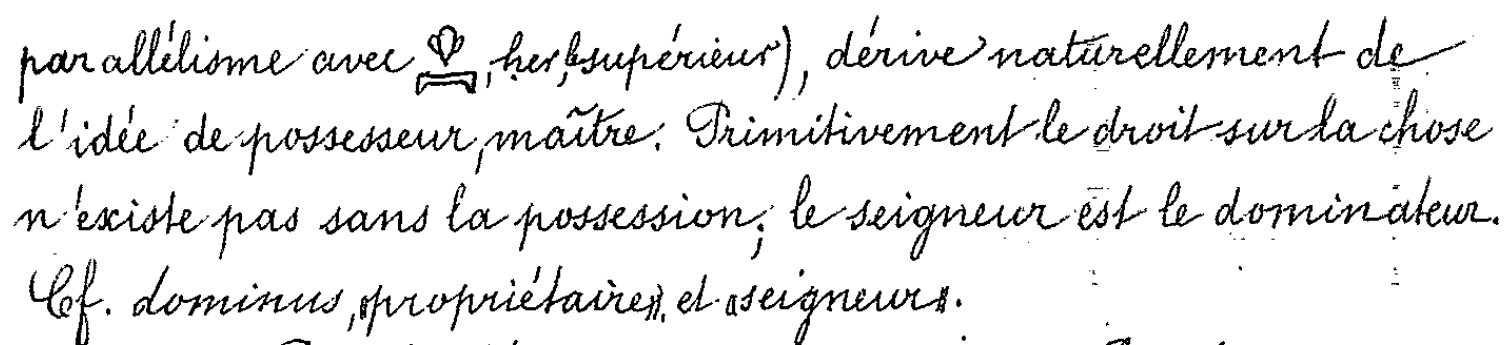 parallélisme avec 𓁷, her, «supérieur»), dérive naturellement de
l'idée de possesseur, maître. Primitivement le droit sur la chose
n'existe pas sans la possession; le seigneur est le dominateur.
Cf. dominus, «propriétaire», et «seigneur».